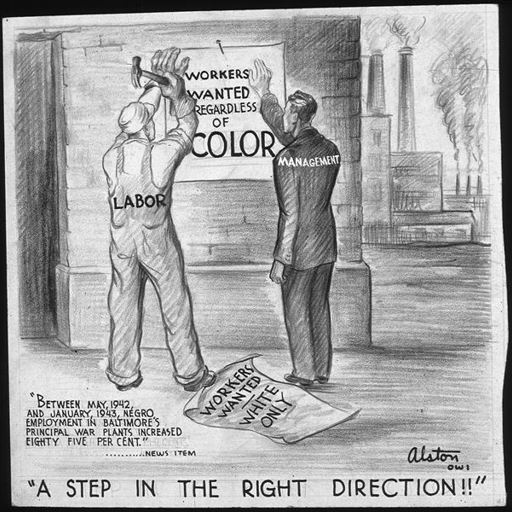 WORKERS
WANTED
REGARDLESS
OF
COLOR
LABOR
MANAGEMENT
WORKERS
WANTED
WHITE
ONLY
"BETWEEN MAY, 1942,
AND JANUARY, 1943, NEGRO
EMPLOYMENT IN BALTIMORE'S
PRINCIPAL WAR PLANTS INCREASED
EIGHTY FIVE PER CENT."
..........NEWS ITEM
Alston
OWI
"A STEP IN THE RIGHT DIRECTION!!"